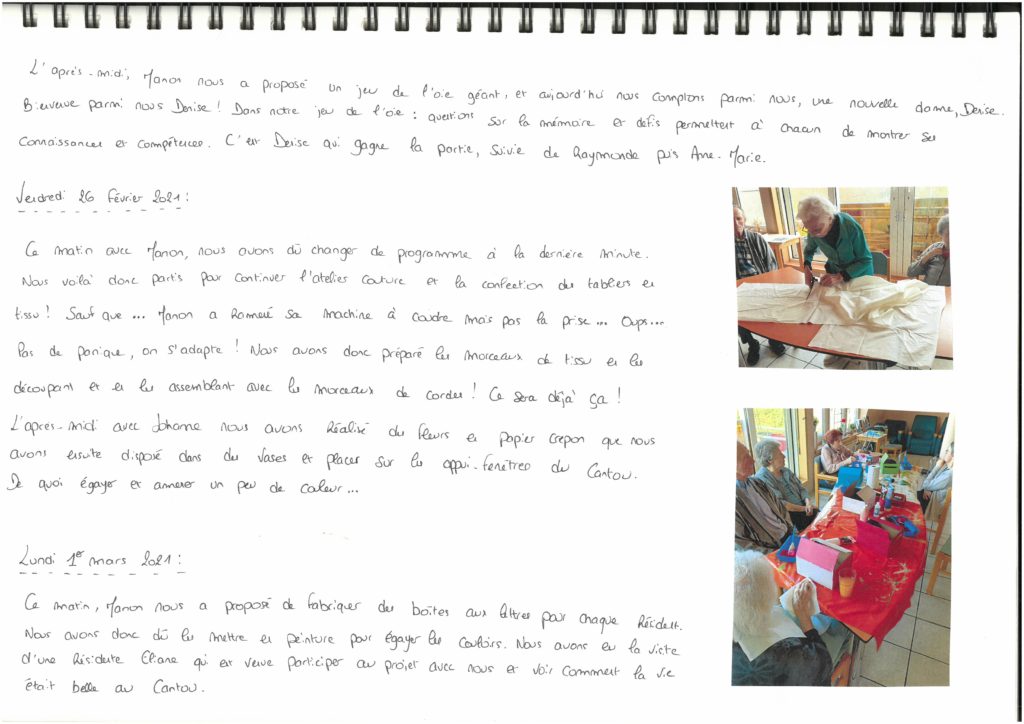 L'après-midi, Manon nous a proposé un jeu de l'oie géant, et aujourd'hui nous comptons parmi nous, une nouvelle dame, Denise.
Bienvenue parmi nous Denise ! Dans notre jeu de l'oie : questions sur la mémoire et défis permettent à chacun de montrer ses
connaissances et compétences. C'est Denise qui gagne la partie, suivie de Raymonde puis Anne-Marie.
Vendredi 26 Février 2021 :
Ce matin avec Manon, nous avons dû changer de programme à la dernière minute.
Nous voilà donc partis pour continuer l'atelier couture et la confection des tabliers en
tissu ! Sauf que ... Manon a Ramené sa machine à coudre mais pas la prise ... Oups...
Pas de panique, on s'adapte ! Nous avons donc préparé les morceaux de tissu en les
découpant et en les assemblant avec les morceaux de cordes ! Ce sera déjà ça !
L'après-midi avec Johanne nous avons Réalisé des fleurs en papier crepon que nous
avons ensuite disposé dans des vases et placer sur les appui-fenêtres du Cantou.
De quoi égayer et amener un peu de couleur...
Lundi 1er mars 2021 :
Ce matin, Manon nous a proposé de fabriquer des boîtes aux lettres pour chaque Résident.
Nous avons donc dû les mettre en peinture pour égayer les couloirs. Nous avons eu la visite
d'une Résidente Eliane qui est venue participer au projet avec nous et voir comment la vie
était belle au Cantou.